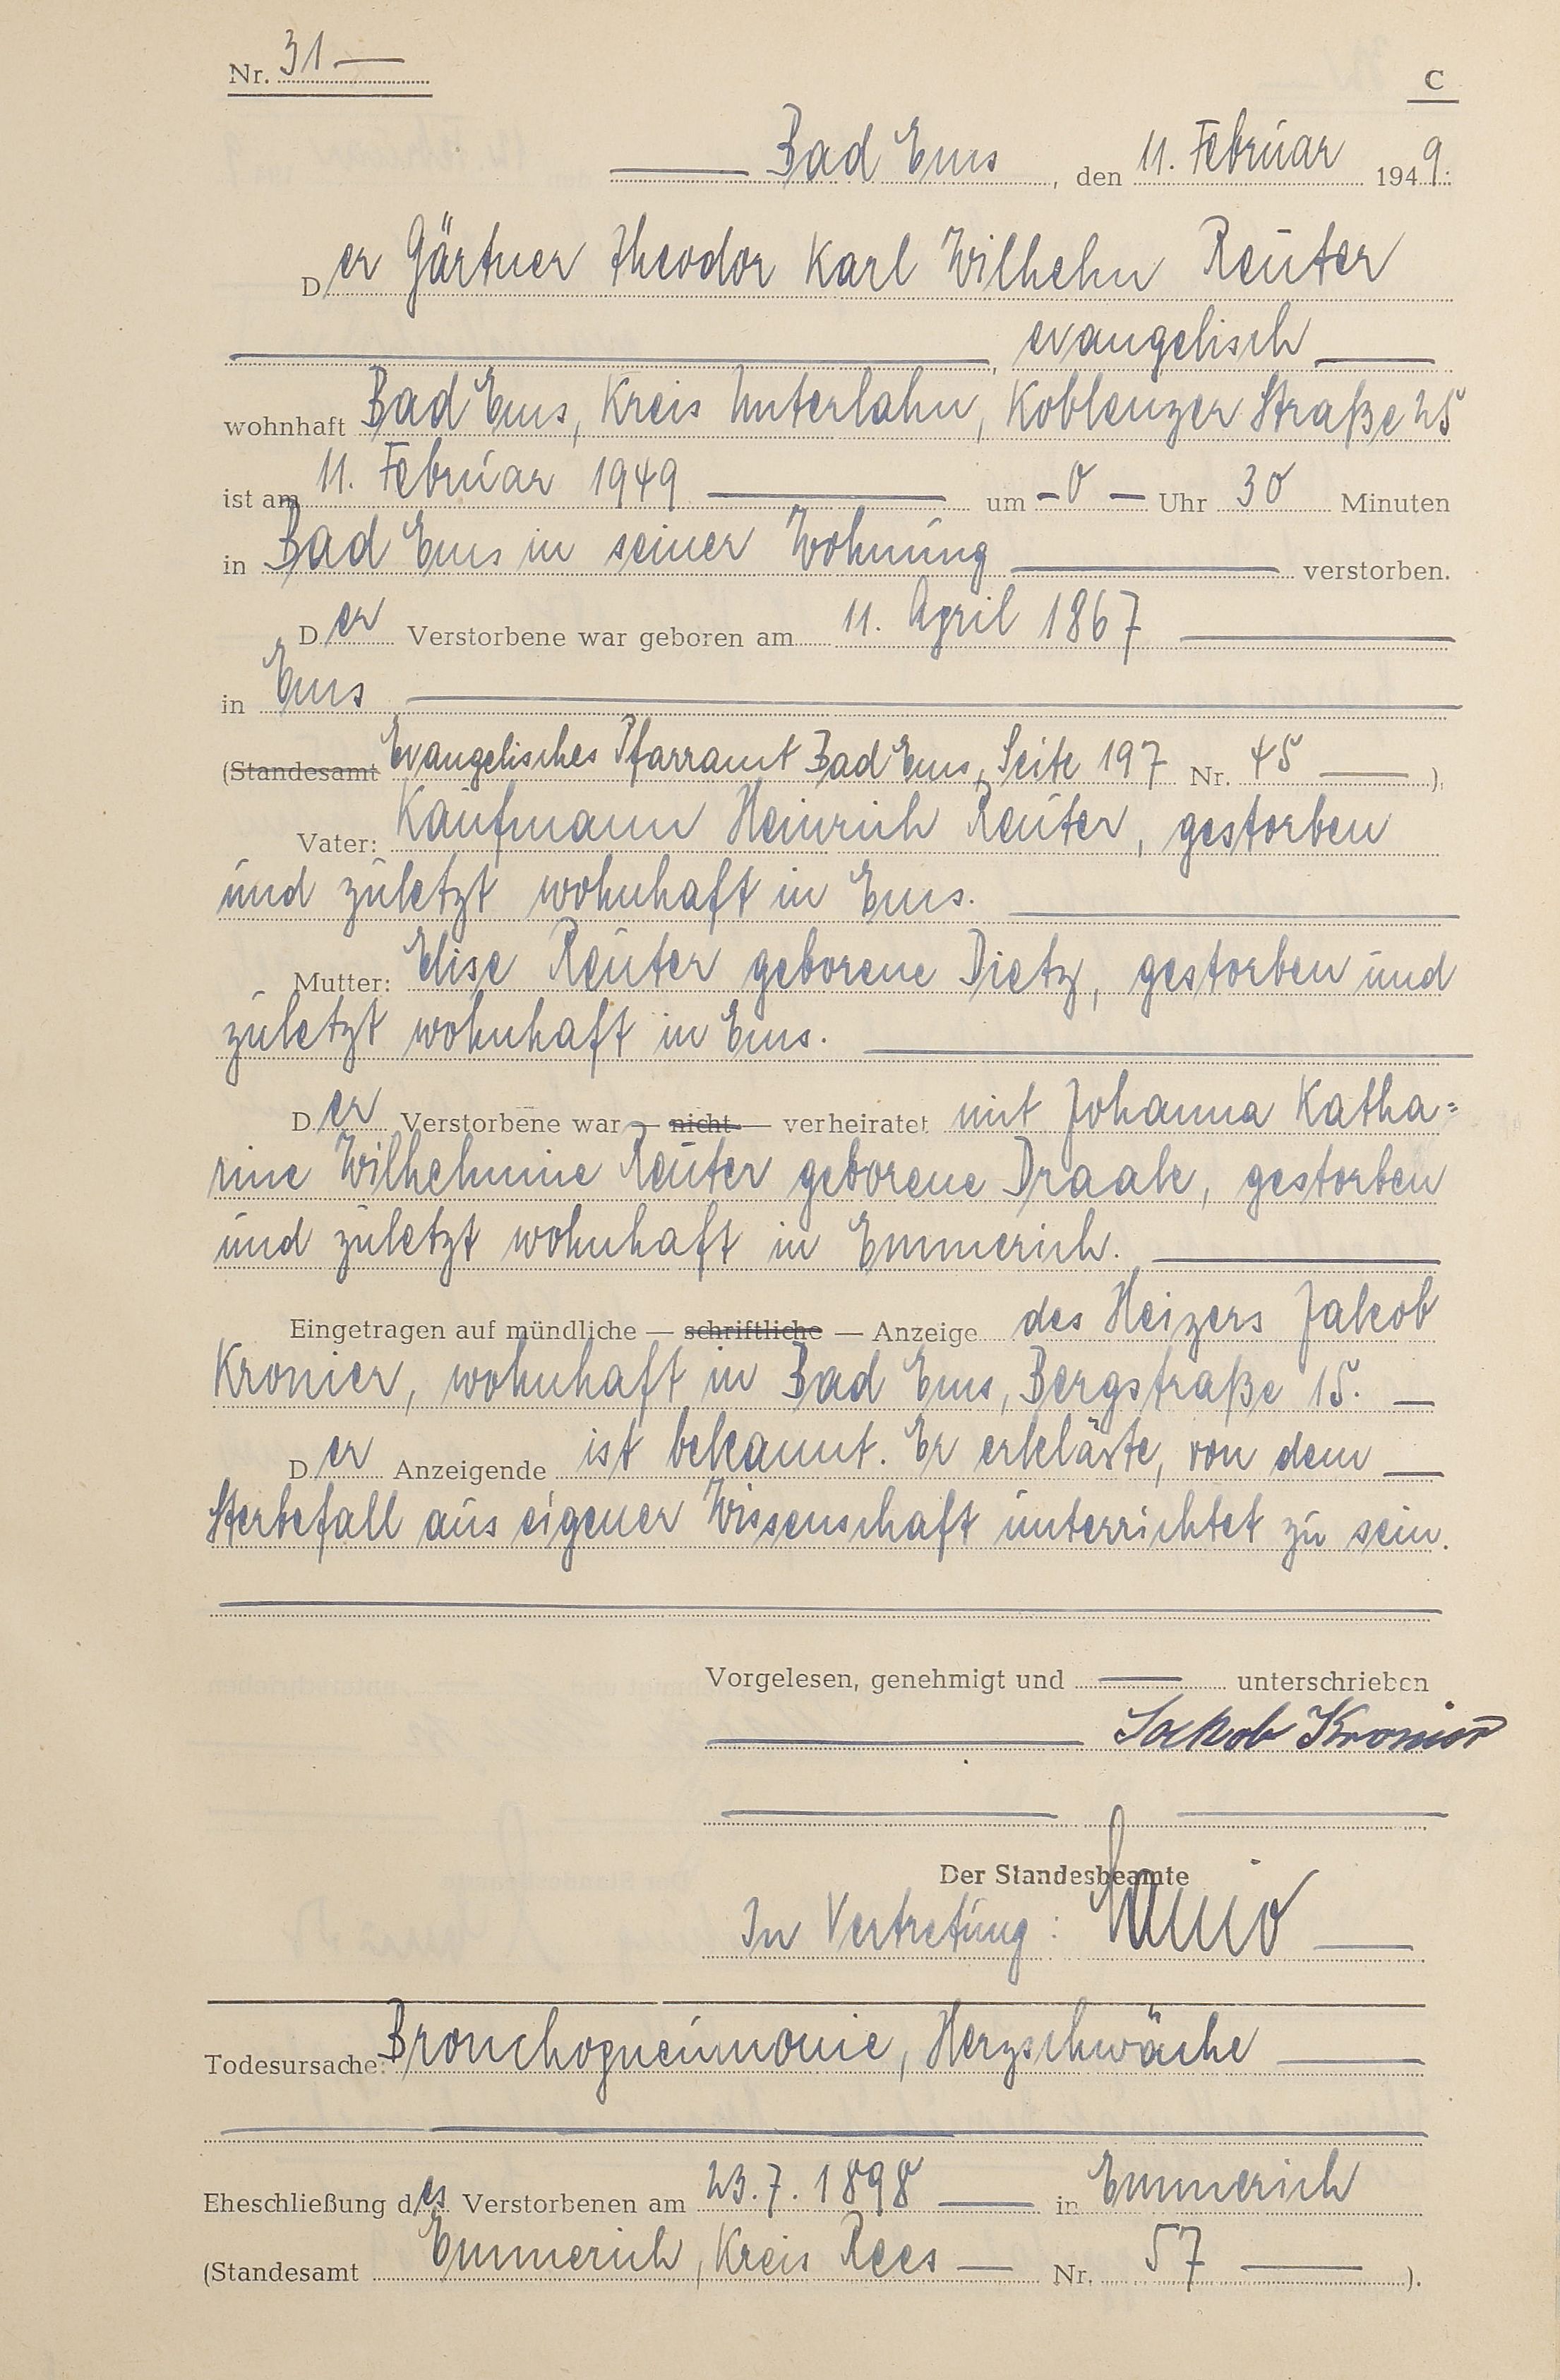 Nr. 31 —
C
Bad Ems, den 11. Februar 1949.
Der Gärtner Theodor Karl Wilhelm Reuter
evangelisch
wohnhaft Bad Ems, Kreis Unterlahn, Koblenzer Straße 25
ist am 11. Februar 1949 um - 0 — Uhr 30 Minuten
in Bad Ems in seiner Wohnung verstorben.
Der Verstorbene war geboren am 11. April 1867
in Ems
(Standesamt Evangelisches Pfarramt Bad Ems, Seite 197 Nr. 45 — ).
Vater: Kaufmann Heinrich Reuter, gestorben
und zuletzt wohnhaft in Ems.
Mutter: Elise Reuter geborene Dietz, gestorben und
zuletzt wohnhaft in Ems.
Der Verstorbene war — nicht — verheiratet mit Johanna Katha=
rine Wilhelmine Reuter geborene Draak, gestorben
und zuletzt wohnhaft in Emmerich.
Eingetragen auf mündliche — schriftliche — Anzeige des Heizers Jakob
Kronier, wohnhaft in Bad Ems, Bergstraße 15. —
Der Anzeigende ist bekannt. Er erklärte, von dem —
Sterbefall aus eigener Wissenschaft unterrichtet zu sein.
Vorgelesen, genehmigt und — unterschrieben
Jakob Kronier
Der Standesbeamte
In Vertretung:
Todesursache: Bronchopneumonie, Herzschwäche
Eheschließung des Verstorbenen am 23.7.1898 — in Emmerich
(Standesamt Emmerich, Kreis Rees — Nr. 57 — ).